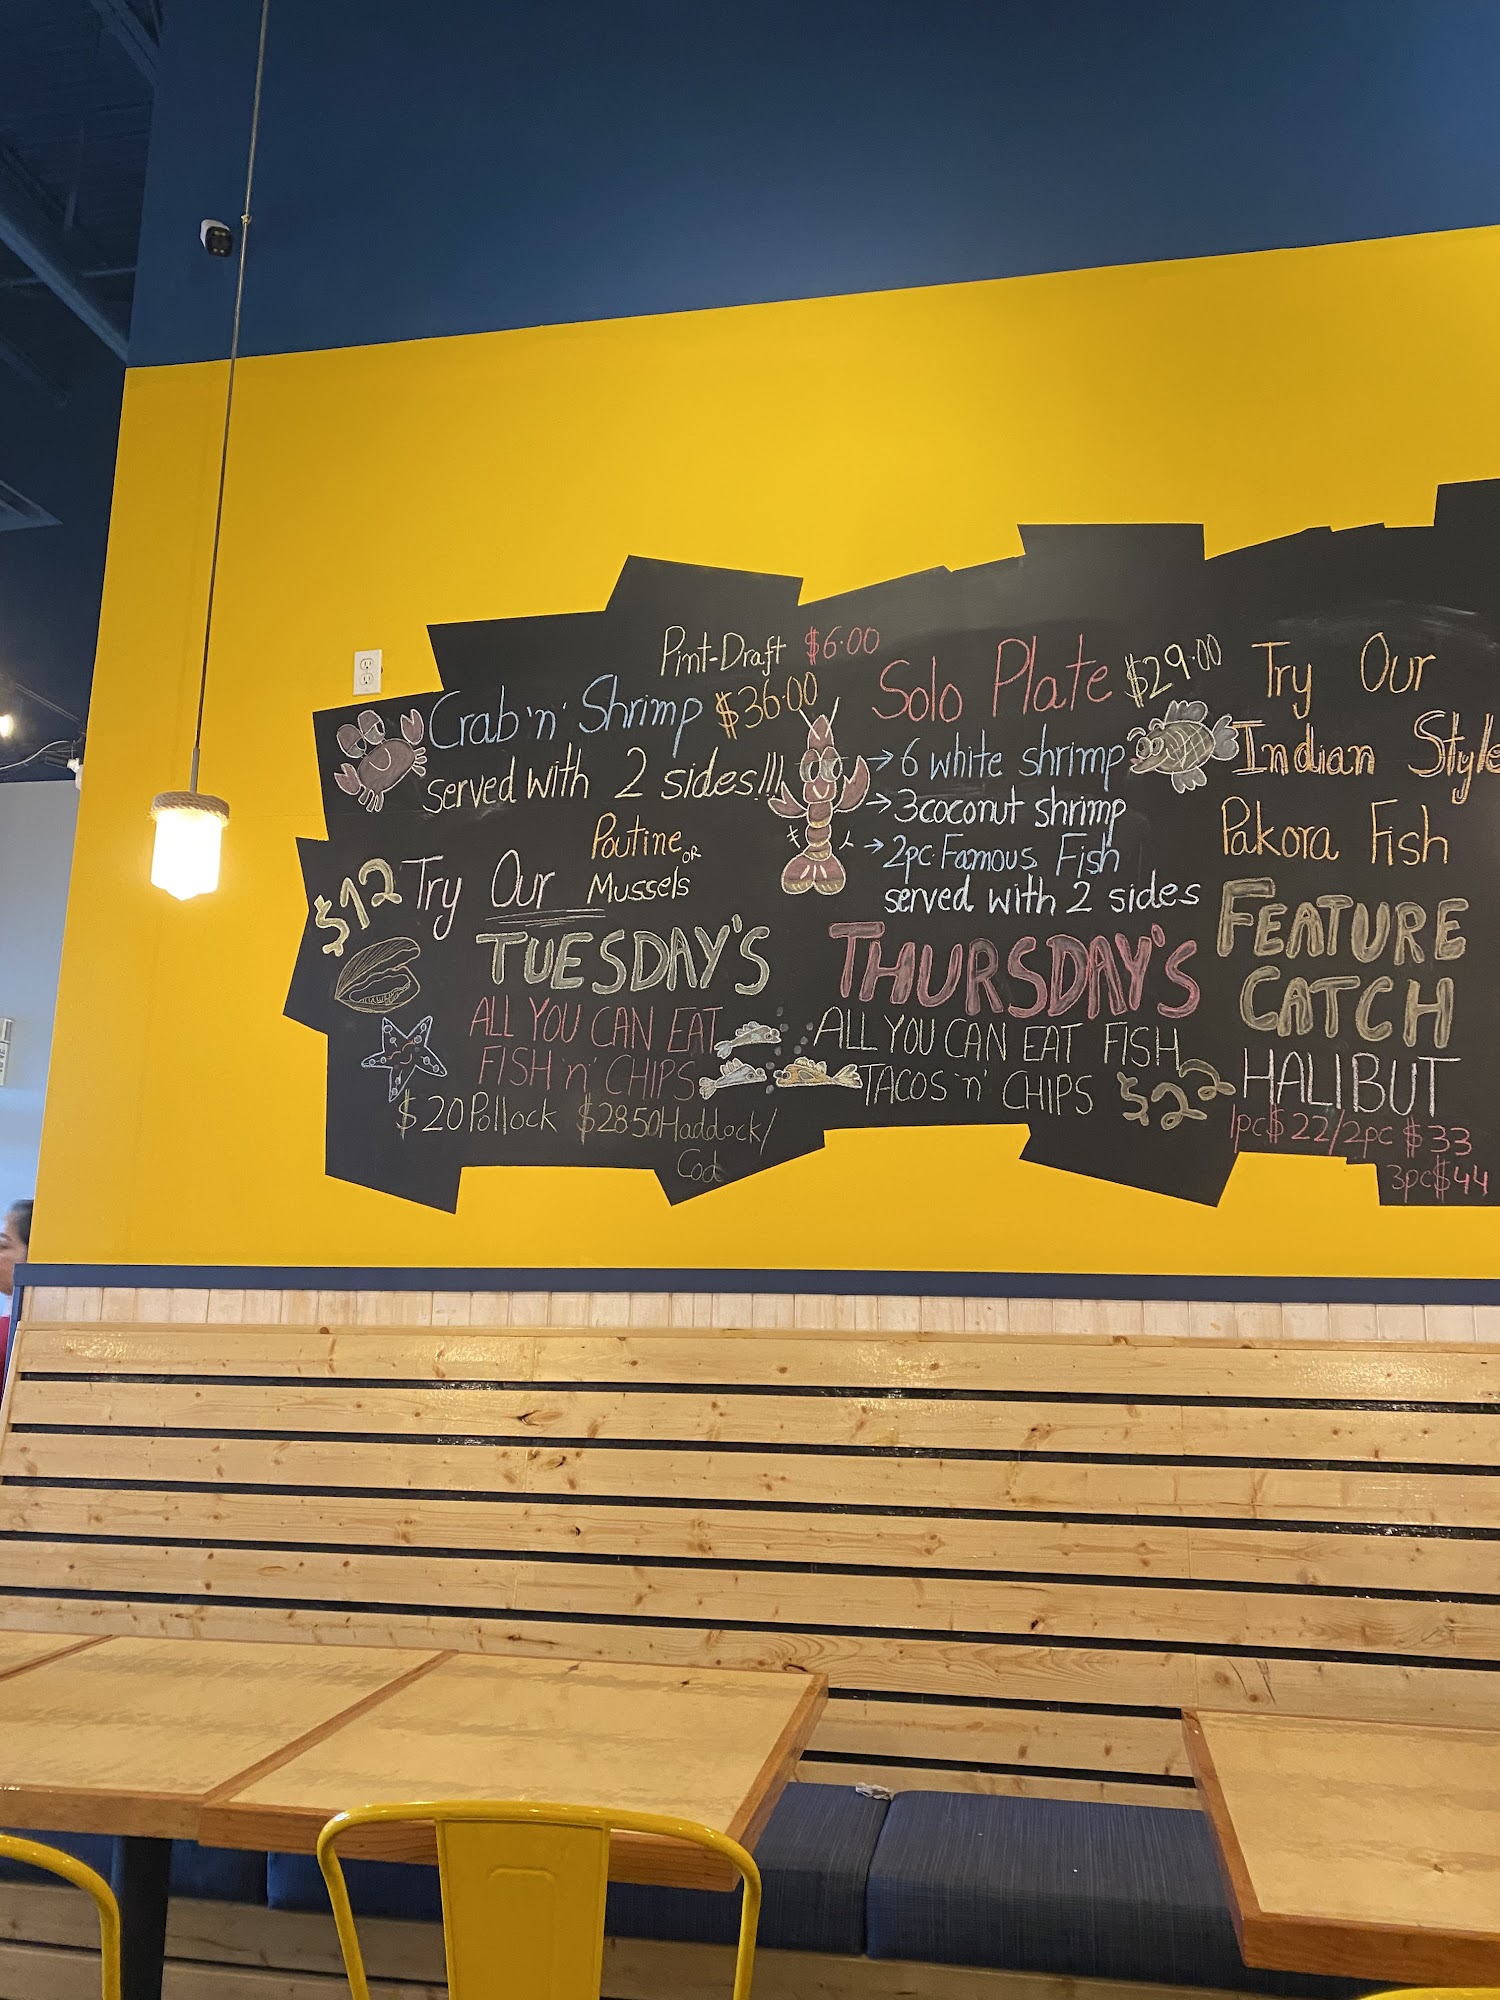 Pint-Draft $6.00
Crab 'n' Shrimp $36.00
served with 2 sides!!!
$12 Try Our Poutine OR
Mussels
TUESDAY'S
ALL YOU CAN EAT
FISH 'n' CHIPS
$20 Pollock $28.50 Haddock/
Cod
Solo Plate $29.00
→ 6 white shrimp
→ 3 coconut shrimp
→ 2pc. Famous Fish
served with 2 sides
THURSDAY'S
ALL YOU CAN EAT FISH
TACOS 'n' CHIPS $22
Try Our
Indian Style
Pakora Fish
FEATURE
CATCH
HALIBUT
1pc $22/2pc $33
3pc $44